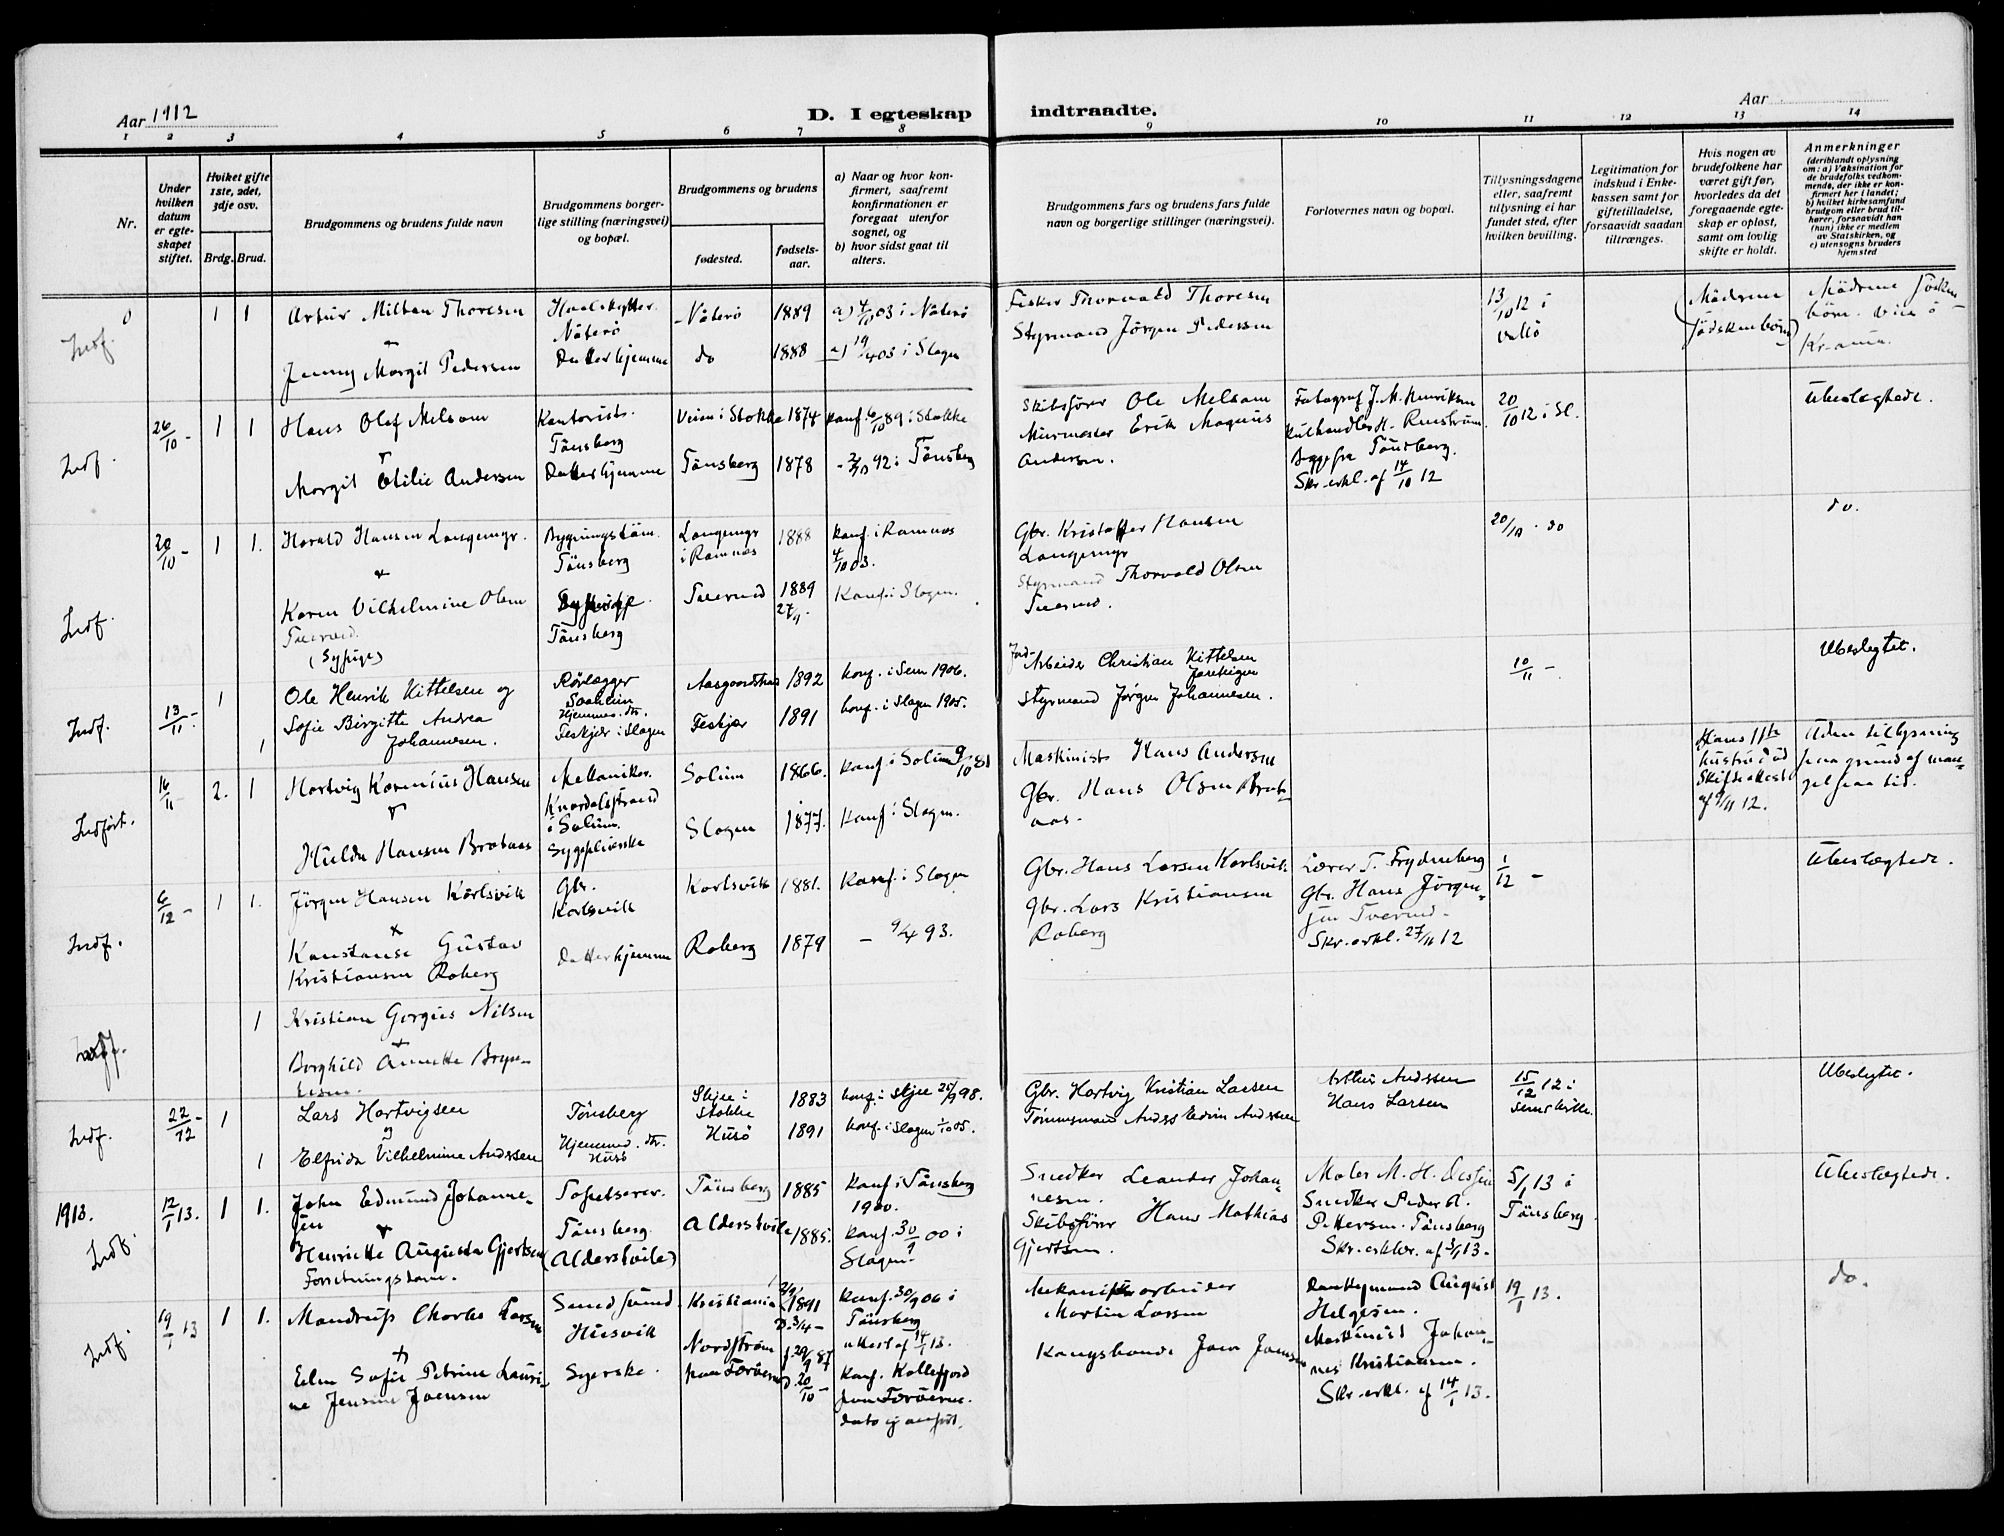 Aar 1912
D. I egteskap
indtraadte.
Aar
1 2 3 4 5 6 7 8 9 10 11 12 13 14
Nr.
Under hvilken datum er egteskapet stiftet.
Hviket gifte 1ste, 2det, 3dje osv.
Brdg. Brud.
Brudgommens og brudens fulde navn
Brudgommens borgerlige stilling (næringsvei) og bopæl.
Brudgommens og brudens
fødested.
fødselsaar.
a) Naar og hvor konfirmert, saafremt konfirmationen er foregaat utenfor sognet, og
b) hvor sidst gaat til alters.
Brudgommens fars og brudens fars fulde navn og borgerlige stillinger (næringsvei).
Forlovernes navn og bopæl.
Tillysningsdagene eller, saafremt tillysning ei har fundet sted, efter hvilken bevilling.
Legitimation for indskud i Enkekassen samt for giftetilladelse, forsaavidt saadan tiltrænges.
Hvis nogen av brudefolkene har været gift før, hvorledes da det foregaaende egteskap er opløst, samt om lovlig skifte er holdt.
Anmerkninger
(deriblandt oplysning om: a) Vaksination for de brudefolks vedkommende, der ikke er konfirmert her i landet; b) hvilket kirkesamfund brudgom eller brud tilhører, forsaavidt han (hun) ikke er medlem av Statskirken, og c) utensogns bruders hjemsted
Indf. 1 1 Artur Milton Thoresen
Nøterø
Nøterø 1889 a) 4/10 03 i Nøterø
Fisker Thorvald Thoresen
13/10 12 i
Jenny Margit Pedersen
Datter hjemme
do 1888 a) 19/4 03 i Slagen
Styrmand Jörgen Pedersen
Indf. 26/10 - 1 1 Hans Olof Melsom
Kontorist.
Tönsberg
Stokke 1874 konf. 6/10 89 i Stokke
Skibsförer Ole Melsom
Fotograf J. M. Henriksen
20/10 12 i Sl.
Ubeslægtede.
Margit Otilie Andersen
Datter hjemme
Tönsberg 1878 - 2/10 92 i Tönsberg
Murmester Erik Magnus
Andersen.
Begge fra Tönsberg.
Skr. erkl. af 14/10 12
Indf. 20/10 - 1 1. Harald Hansen Langemyr.
Tönsberg
Langemyr
i Ramnæs
1888
konf. i Ramnæs
4/10 03.
Gbr. Kristoffer Hansen
Langemyr
20/10 . do
do.
Karen Vilhelmine Olsen
(Sypige)
Tönsberg
1889
27/9
Konf. i Slagen.
Styrmand Thorvald Olsen
Indf. 13/11 - 1 Ole Henrik Kittelsen og
Rörlægger
1892 konf. i Sem 1906.
Arbeider Christian Kittelsen
10/11 -
Ubeslegtet.
1 Sofie Birgitte Andrea
Johannesen.
Hjemmev. dtr.
Feskjær i Slagen
Feskjær 1891 konf. i Slagen 1905.
Styrmand Jörgen Johannesen.
Indført. 16/11 2. 1 Hartvig Kornelius Hansen
Mekaniker.
Knardalsstrand
i Solum.
Solum 1866. konf i Solum 9/10 81
Maskinist Hans Andersen
Hans 1ste
hustru död
Skifteattest
af 9/11 12.
Uden tillysning
paa grund af mangel paa tid.
Hulda Hansen Brataas
Sygepleierske
Slagen 1877. Konf i Slagen.
Gbr. Hans Olsen Brataas.
Indf. 6/12 - 1 1. Jörgen Hansen Karlsvik
Gbr.
Karlsvik
Karlsvik 1881. Konf. i Slagen
Gbr. Hans Larsen Karlsvik
Lærer T. Frydenberg
1/12 -
Ubeslægtede.
Konstanse Gustav
Kristiansen Roberg
Datter hjemme
Roberg 1879 - 9/4 93.
Gbr. Lars Kristiansen
Roberg
Gbr. Hans Jörgensen
Skr. erkl. 27/11 12
1 Kristian Gorgius Nilsen
Borghild Annette
Indf. 22/12 - 1 Lars Hartvigsen
Tönsberg
Skjee i
Stokke
1883 konf. i Skjee 25/9 98.
Gbr. Hartvig Kristian Larsen
Arthur Andersen
15/12 12 i
Ubeslegtet.
1 Elfrida Vilhelmine Andersen
Hjemmev. dtr.
Husö
Husö 1891 konf. i Slagen 1/10 05.
Hans Larsen
1913. Indf. 12/1 13. 1 1. John Edmund Johannesen
Tapetserer.
Tönsberg.
Tönsberg 1885 konf i Tönsberg
1900.
Snedker Leander Johannesen.
5/1 13 i
Tönsberg
Ubeslægtede.
Henriette Augusta Gjertsen
Forretningsdame.
1885. konf. 30/9 00 i
Slagen.
Skibsförer Hans Mathias
Gjertsen.
Snedker Peder A.
Pettersen. Tönsberg
Indf. 19/1 13 1 1. Mandrup Charles Larsen
Husvik
Kristiania 1891
konf. 30/9 06 i
Tönsberg
attest af 14/1 13.
Martin Larsen
August
Helgesen.
19/1 13.
do.
Elen Sofie Petrine Laurine Jensine Joensen
Syerske.
paa Færöerne
f. 29/9 87
D. 20/10 -
Konf. Kollefjord
paa Færöerne.
dato ej anfört.
Kongsbonde Joen Joensen
Maskinist Johannes Kristiansen.
Skr. erkl. af 14/1 13.